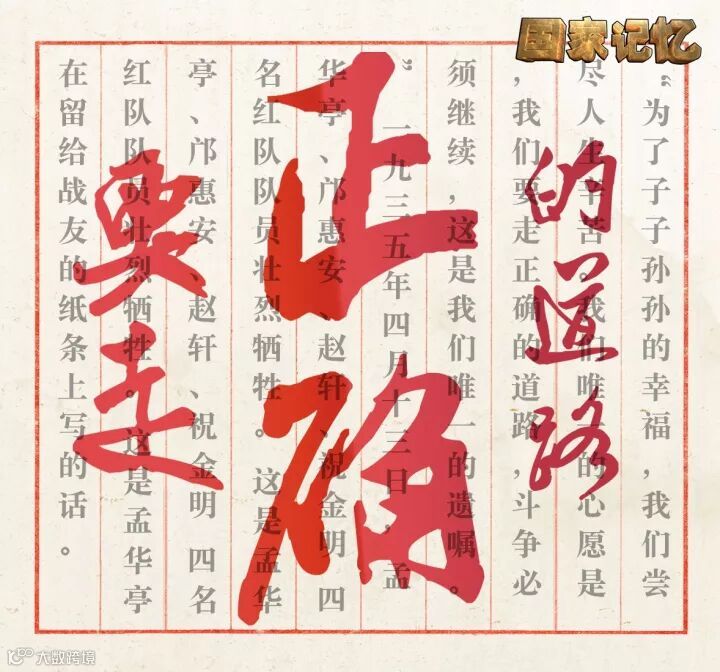 国家记忆
要走
正确
的道路
“为了子子孙孙的幸福，我们尝
尽人生辛苦。我们唯一的心愿是
，我们要走正确的道路，斗争必
须继续，这是我们唯一的遗嘱。
”一九三五年四月十三日，孟
华亭、邝惠安、赵轩、祝金明 四
名红队队员壮烈牺牲。这是孟华
亭、邝惠安、赵轩、祝金明 四名
红队队员壮烈牺牲。这是孟华亭
在留给战友的纸条上写的话。
大数跨境